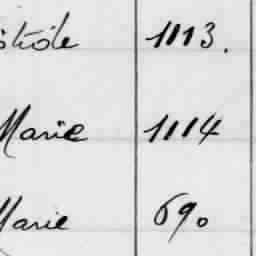 1113.
Marie 1114
Marie 690